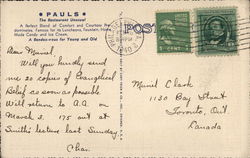 PAULS
The Restaurant Unusual
A Perfect Blend of Comfort and Courtesy Pre-
dominates. Famous for its Luncheons, Fountain, Home
Made Candy and Ice Cream.
A Rendez-vous for Young and Old
POST
1 CENT 1
Dear Muriel,
Will you kindly send
me 20 copies of Evangelical
Belief as soon as possible.
Will return to A.A. on
March 3. 175 out at
Smiths lecture last Sunday.
Chas.
Muriel Clark
1130 Bay Street
Toronto, Ont
Canada